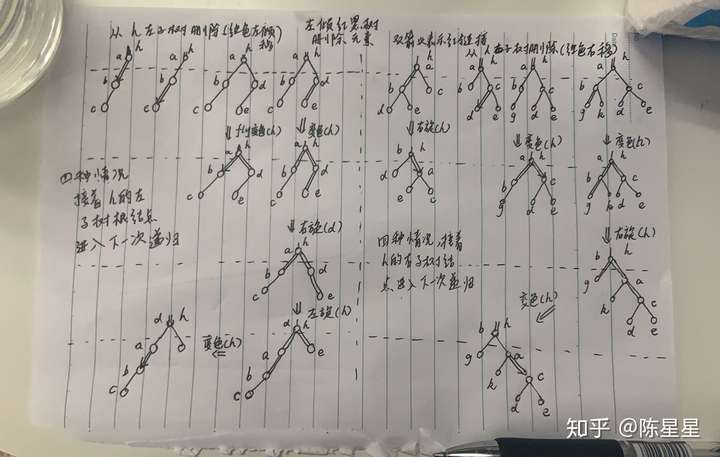 从h左子树删除(红色左倾移)
左倾红黑树
删除元素
双箭头表示红链接
从h右子树删除(红色右移)
a h
b
c
a h
b
c
a h
b d
c e
a h
b d
c e
a h
b c
a h
b c
d e
a h
b c
g d e
a h
b c
g k d e
flip变色(h)
变色(h)
右旋(h)
变色(h)
变色(h)
a h
b d
c e
a h
b d
c e
b h
a
c
a h
b c
g d e
a h
b c
g k d e
四种情况
接着h的左
子树根结点
进入下一次递归
右旋(d)
四种情况,接着
h的右子树结
点进入下一次递归
右旋(h)
a h
b d
c e
b h
a
k c
d e
左旋(h)
变色(h)
d h
a
b
c
变色(h)
d h
a e
b
c
b h
g a
k c
d e
知乎 @陈星星